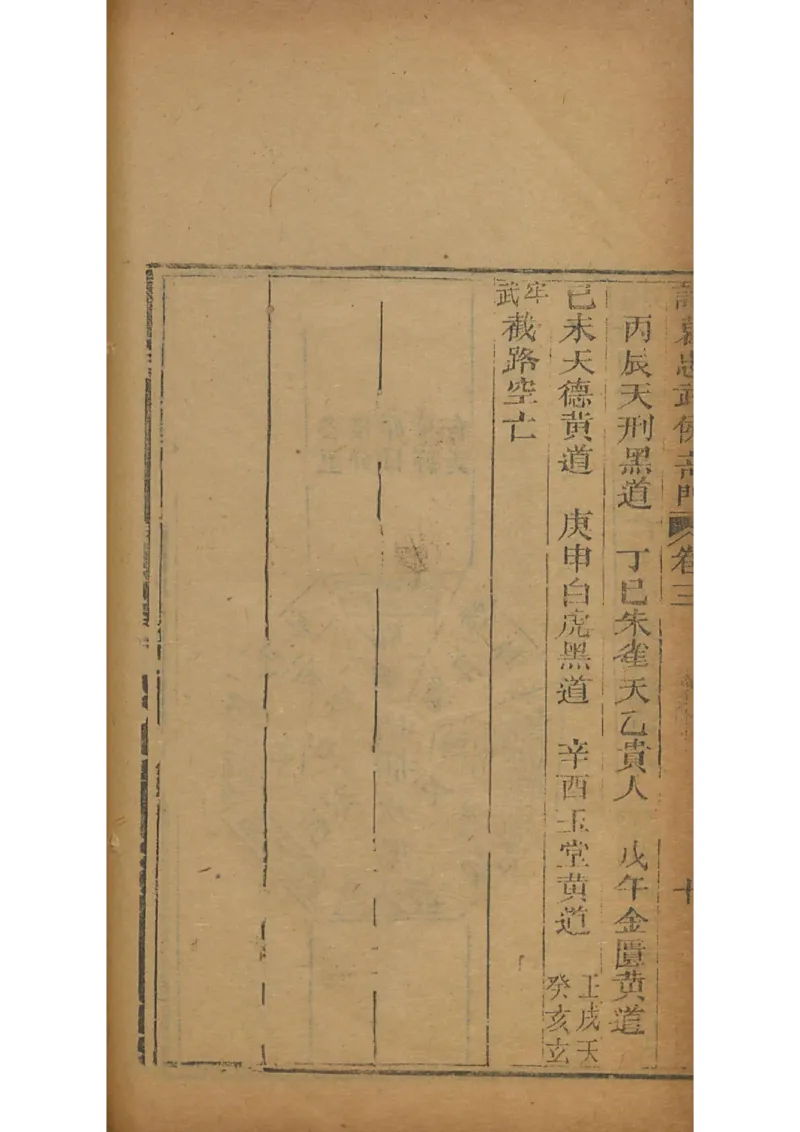 諸葛忠武侯奇門 卷三 十
丙辰天刑黑道 丁巳朱雀天乙貴人 戊午金匱黄道
己未天德黄道 庚申白虎黑道 辛酉玉堂黄道 壬戌天 癸亥玄
牢 武 截路空亡